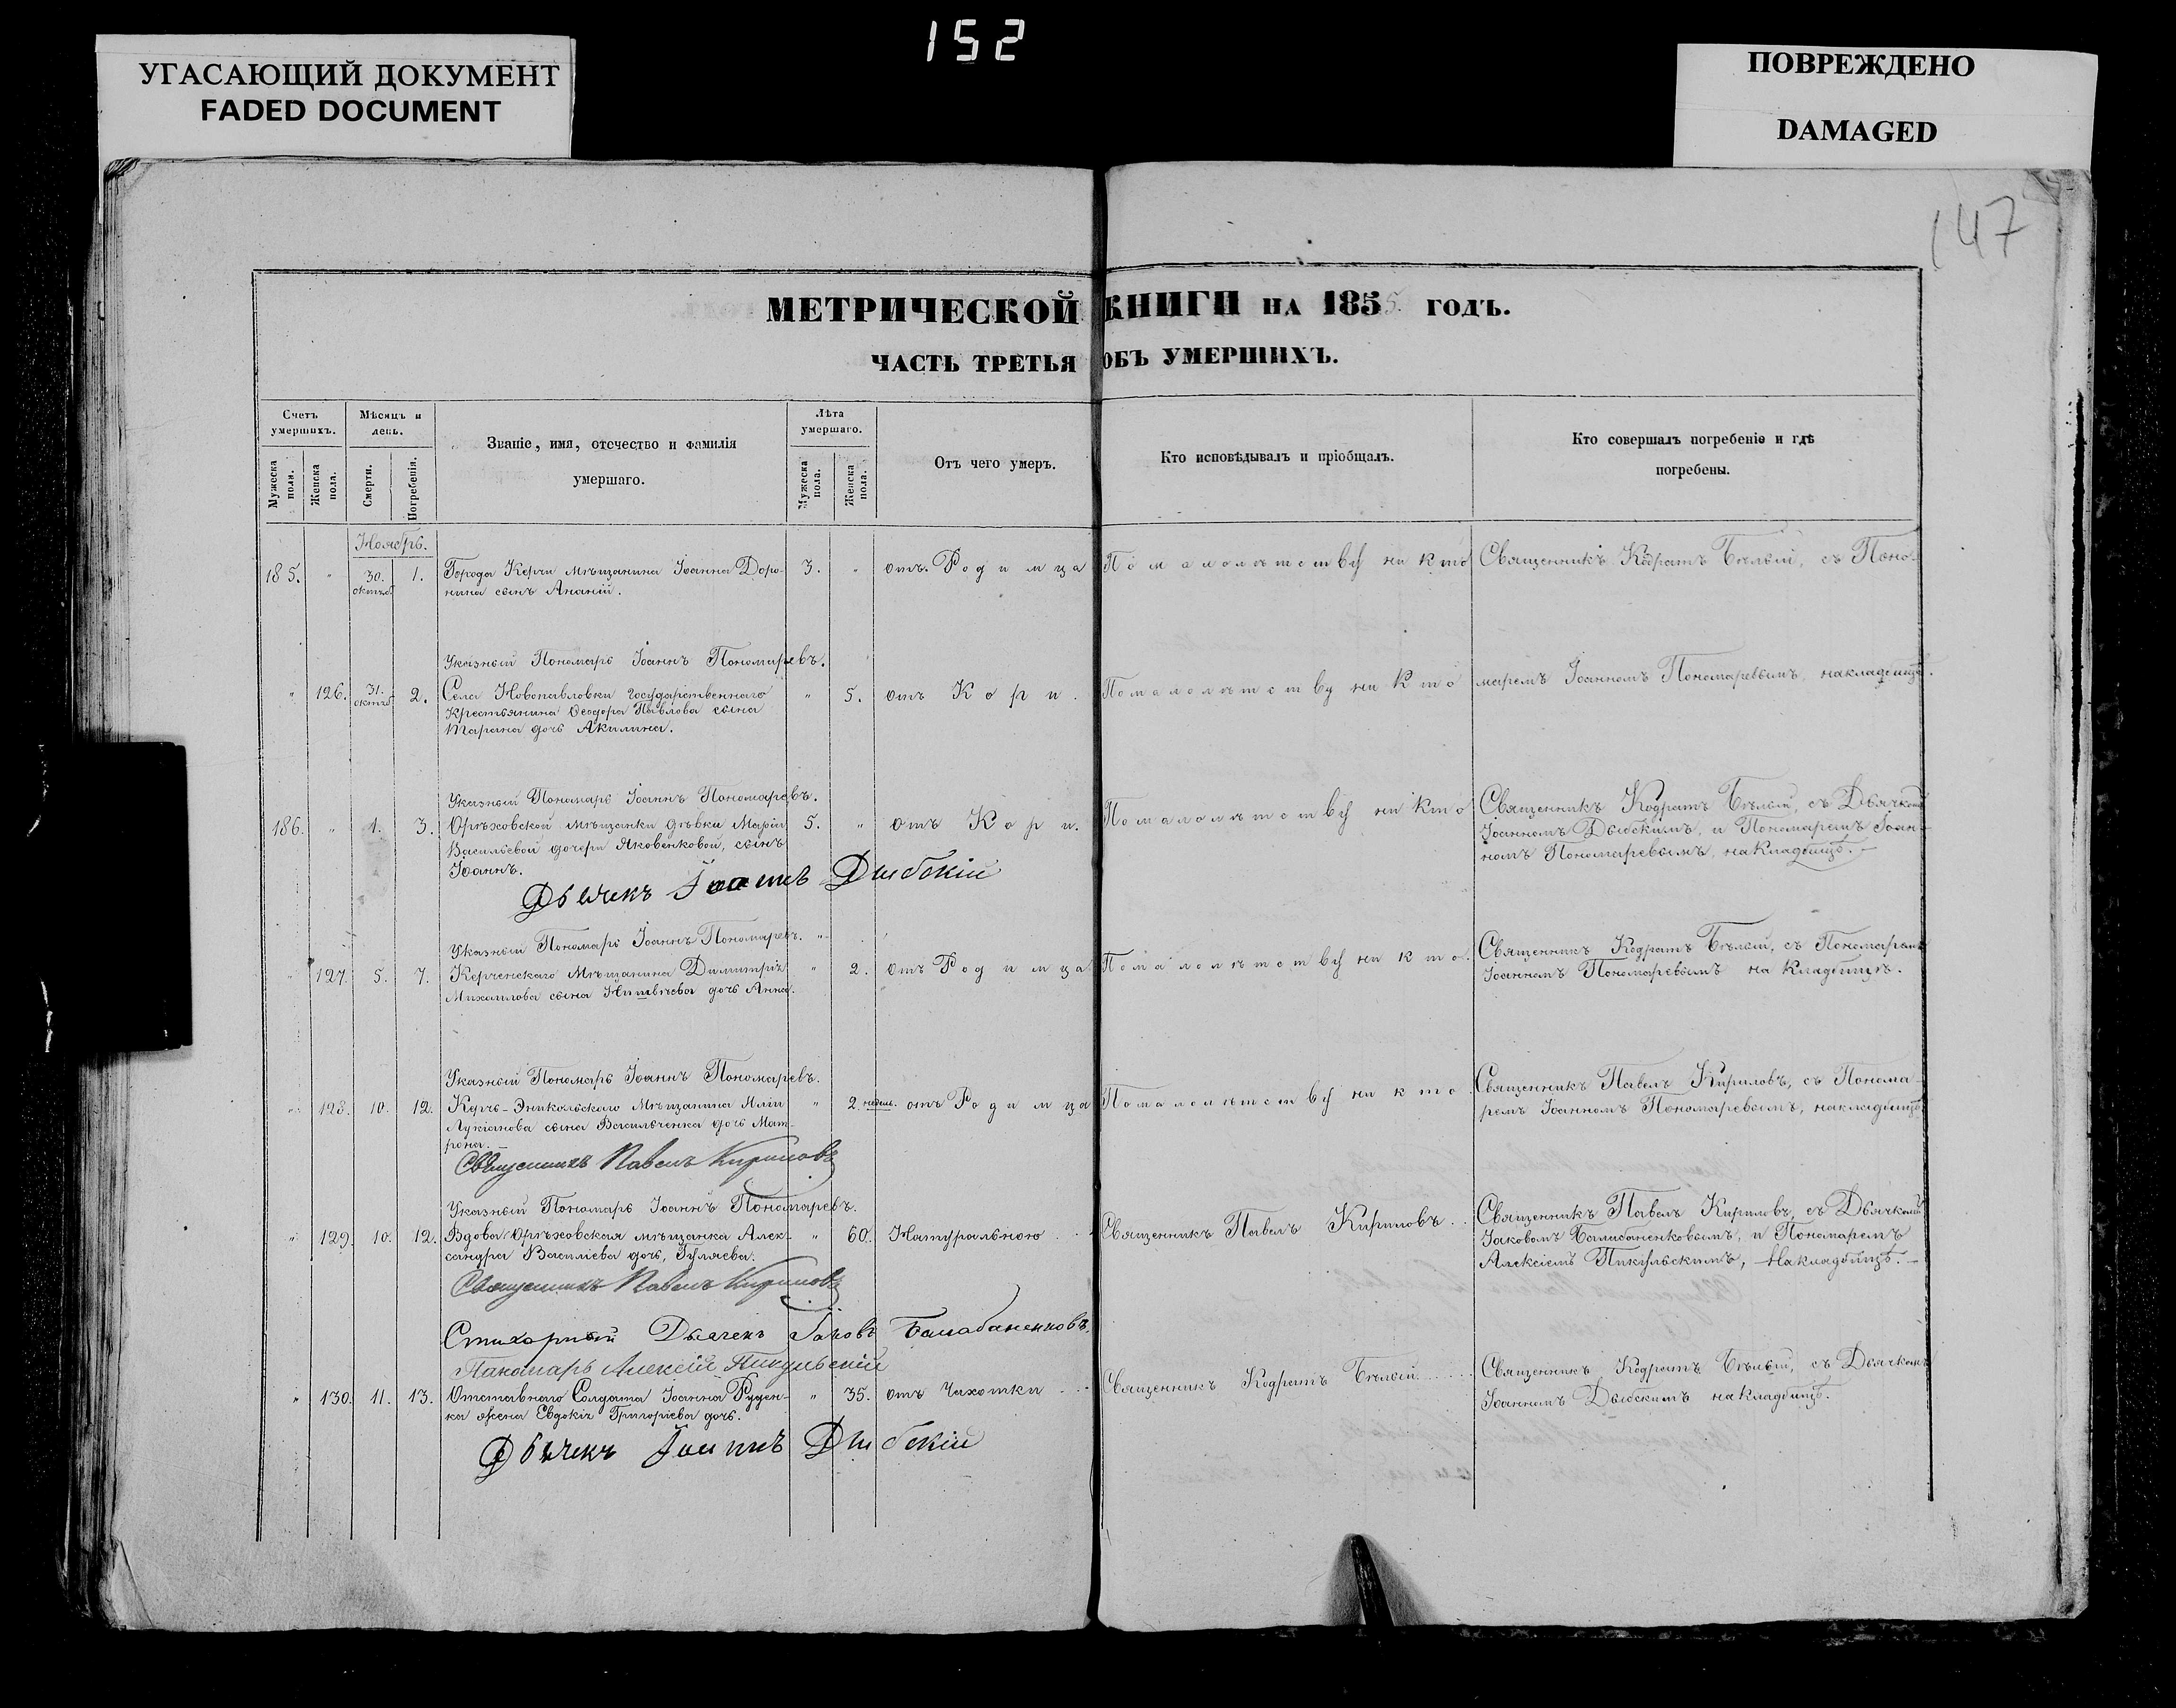 152
УГАСАЮЩИЙ ДОКУМЕНТ
FADED DOCUMENT
ПОВРЕЖДЕНО
DAMAGED
147
МЕТРИЧЕСКОЙ КНИГИ НА 1855 ГОДЪ.
ЧАСТЬ ТРЕТЬЯ ОБЪ УМЕРШИХЪ.
Счетъ умершихъ.
Мужеска пола.
Женска пола.
Мѣсяцъ и день.
Смерти.
Погребенія.
Званіе, имя, отечество и фамилія умершаго.
Лѣта умершаго.
Мужеска пола.
Женска пола.
Отъ чего умеръ.
Кто исповѣдывалъ и пріобщалъ.
Кто совершалъ погребеніе и гдѣ погребены.
Ноябрь.
185. " 30. октяб 1. Города Керчи мѣщанина Іоанна Доро- 3. " отъ Родимца По малолѣтству ни кто Священникъ Кодратъ Бѣлый, съ Поно-
нина сынъ Ананій.
Указный Пономарь Іоаннъ Пономаревъ.
" 126. 31. октяб 2. Села Новопавловки государственнаго " 5. отъ Кори. По малолѣтству ни кто маремъ Іоанномъ Пономаревымъ, на кладбищѣ.
крестьянина Ѳеодора Павлова сына
Тарана дочь Акилина.
Указный Пономарь Іоаннъ Пономаревъ.
186. " 1. 3. Орѣховской мѣщанки дѣвки Маріи 5. " отъ Кори. По малолѣтству ни кто Священникъ Кодратъ Бѣлый, съ Дьячкомъ
Васильевой дочери Яковенковой, сынъ Іоанномъ Дыбскимъ, и Пономаремъ Іоан-
Іоаннъ. номъ Пономаревымъ, на кладбищѣ.
Дьячекъ Іоаннъ Дыбскій
Указный Пономарь Іоаннъ Пономаревъ. "
" 127. 5. 7. Керченскаго Мѣщанина Димитрія " 2. отъ Родимца По малолѣтству ни кто. Священникъ Кодратъ Бѣлый, съ Пономаремъ
Михаилова сына дочь Анна. Іоанномъ Пономаревымъ на кладбищѣ.
Указный Пономарь Іоаннъ Пономаревъ.
" 128. 10. 12. Керчь-Эникольскаго Мѣщанина Иліи " 2 недѣл. отъ Родимца По малолѣтству ни кто. Священникъ Павелъ Кириловъ, съ Понома-
Лукіанова сына Васильченка дочь Мат- ремъ Іоанномъ Пономаревымъ, на кладбищѣ
рона.
Священникъ Павелъ Кириловъ
Указный Пономарь Іоаннъ Пономаревъ.
" 129. 10. 12. Вдова Орѣховская мѣщанка Алек- " 60. Натуральною Священникъ Павелъ Кириловъ Священникъ Павелъ Кириловъ, съ Дьячкомъ
сандра Василіева дочь, Гуляева. Іаковомъ Балабаненковымъ, и Пономаремъ
Алексіемъ Пикульскимъ, на кладбищѣ.
Священникъ Павелъ Кириловъ
Стихарный Дьячекъ Іаковъ Балабаненковъ.
Панамарь Алексій Пикульскій
" 130. 11. 13. Отставнаго Солдата Іоанна Руден- " 35. отъ Чахотки Священникъ Кодратъ Бѣлый Священникъ Кодратъ Бѣлый, съ Дьячкомъ
ка жена Евдокія Григоріева дочь. Іоанномъ Дыбскимъ на кладбищѣ.
Дьячекъ Іоаннъ Дыбскій